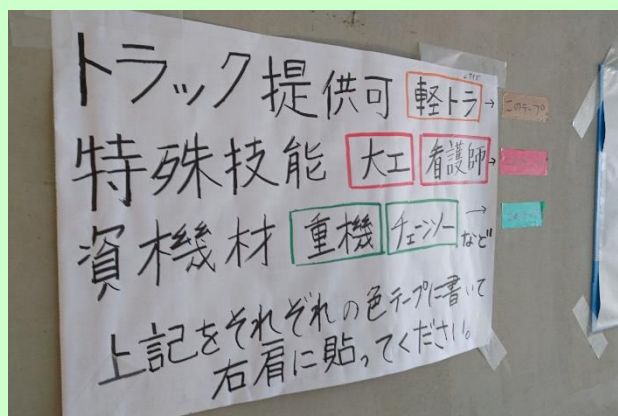 トラック提供可 軽トラ → このテープ
特殊技能 大工 看護師 →
資機材 重機 チェーンソー など →
上記をそれぞれの色テープに書いて
右肩に貼ってください。